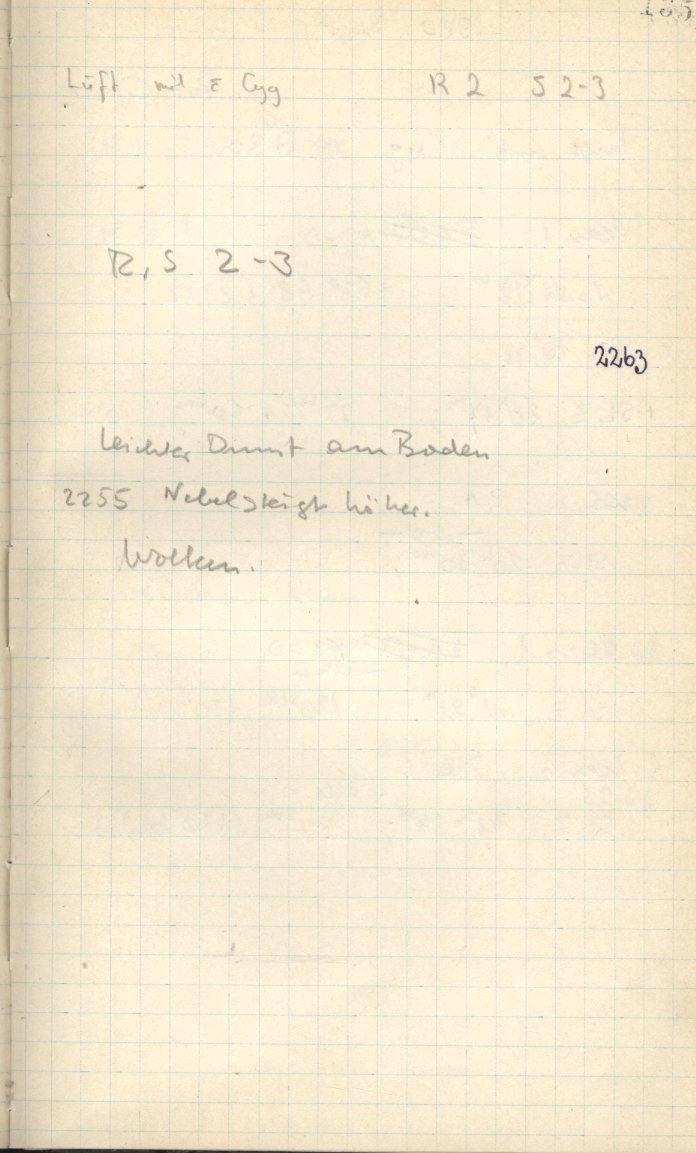 Luft mit ε Cyg R 2 S 2-3
R, S 2-3
2263
leichter Dunst am Boden
2255 Nebel steigt höher.
Wolken.